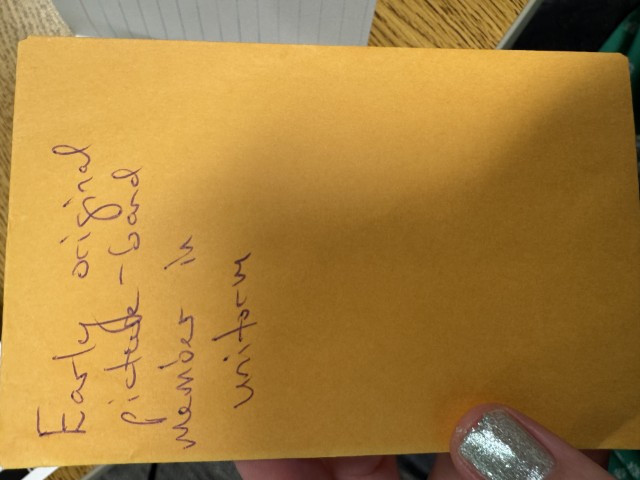 Early original
picture-band
member in
uniform